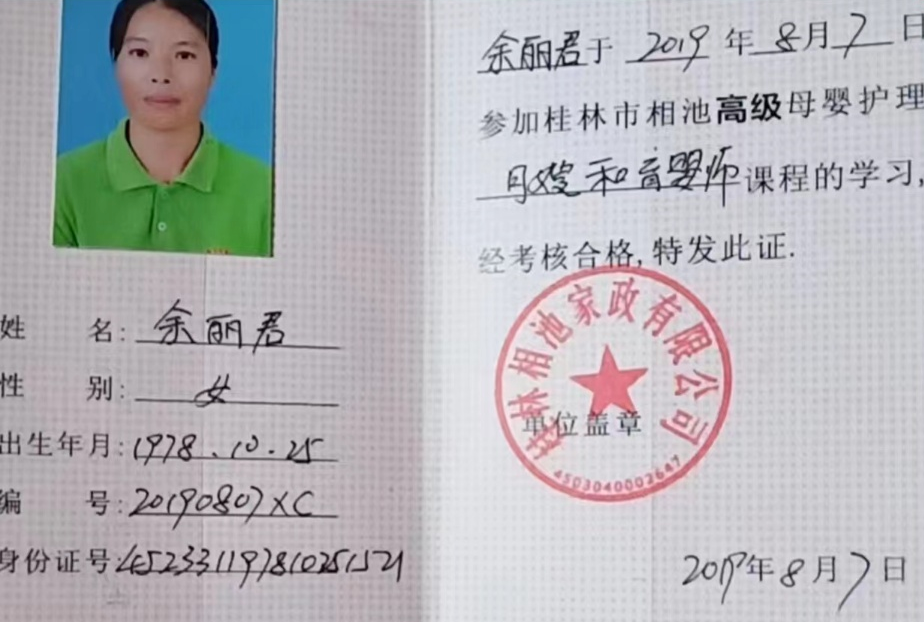 姓 名: 余丽君
性 别: 女
出生年月: 1978.10.25
编 号: 20190807XC
身份证号: 452331197810251521
余丽君于 2019 年 8月 7 日
参加桂林市相池高级母婴护理
月嫂和育婴师课程的学习,
经考核合格,特发此证.
桂林相池家政有限公司
单位盖章
4503040002647
2019年8月7日